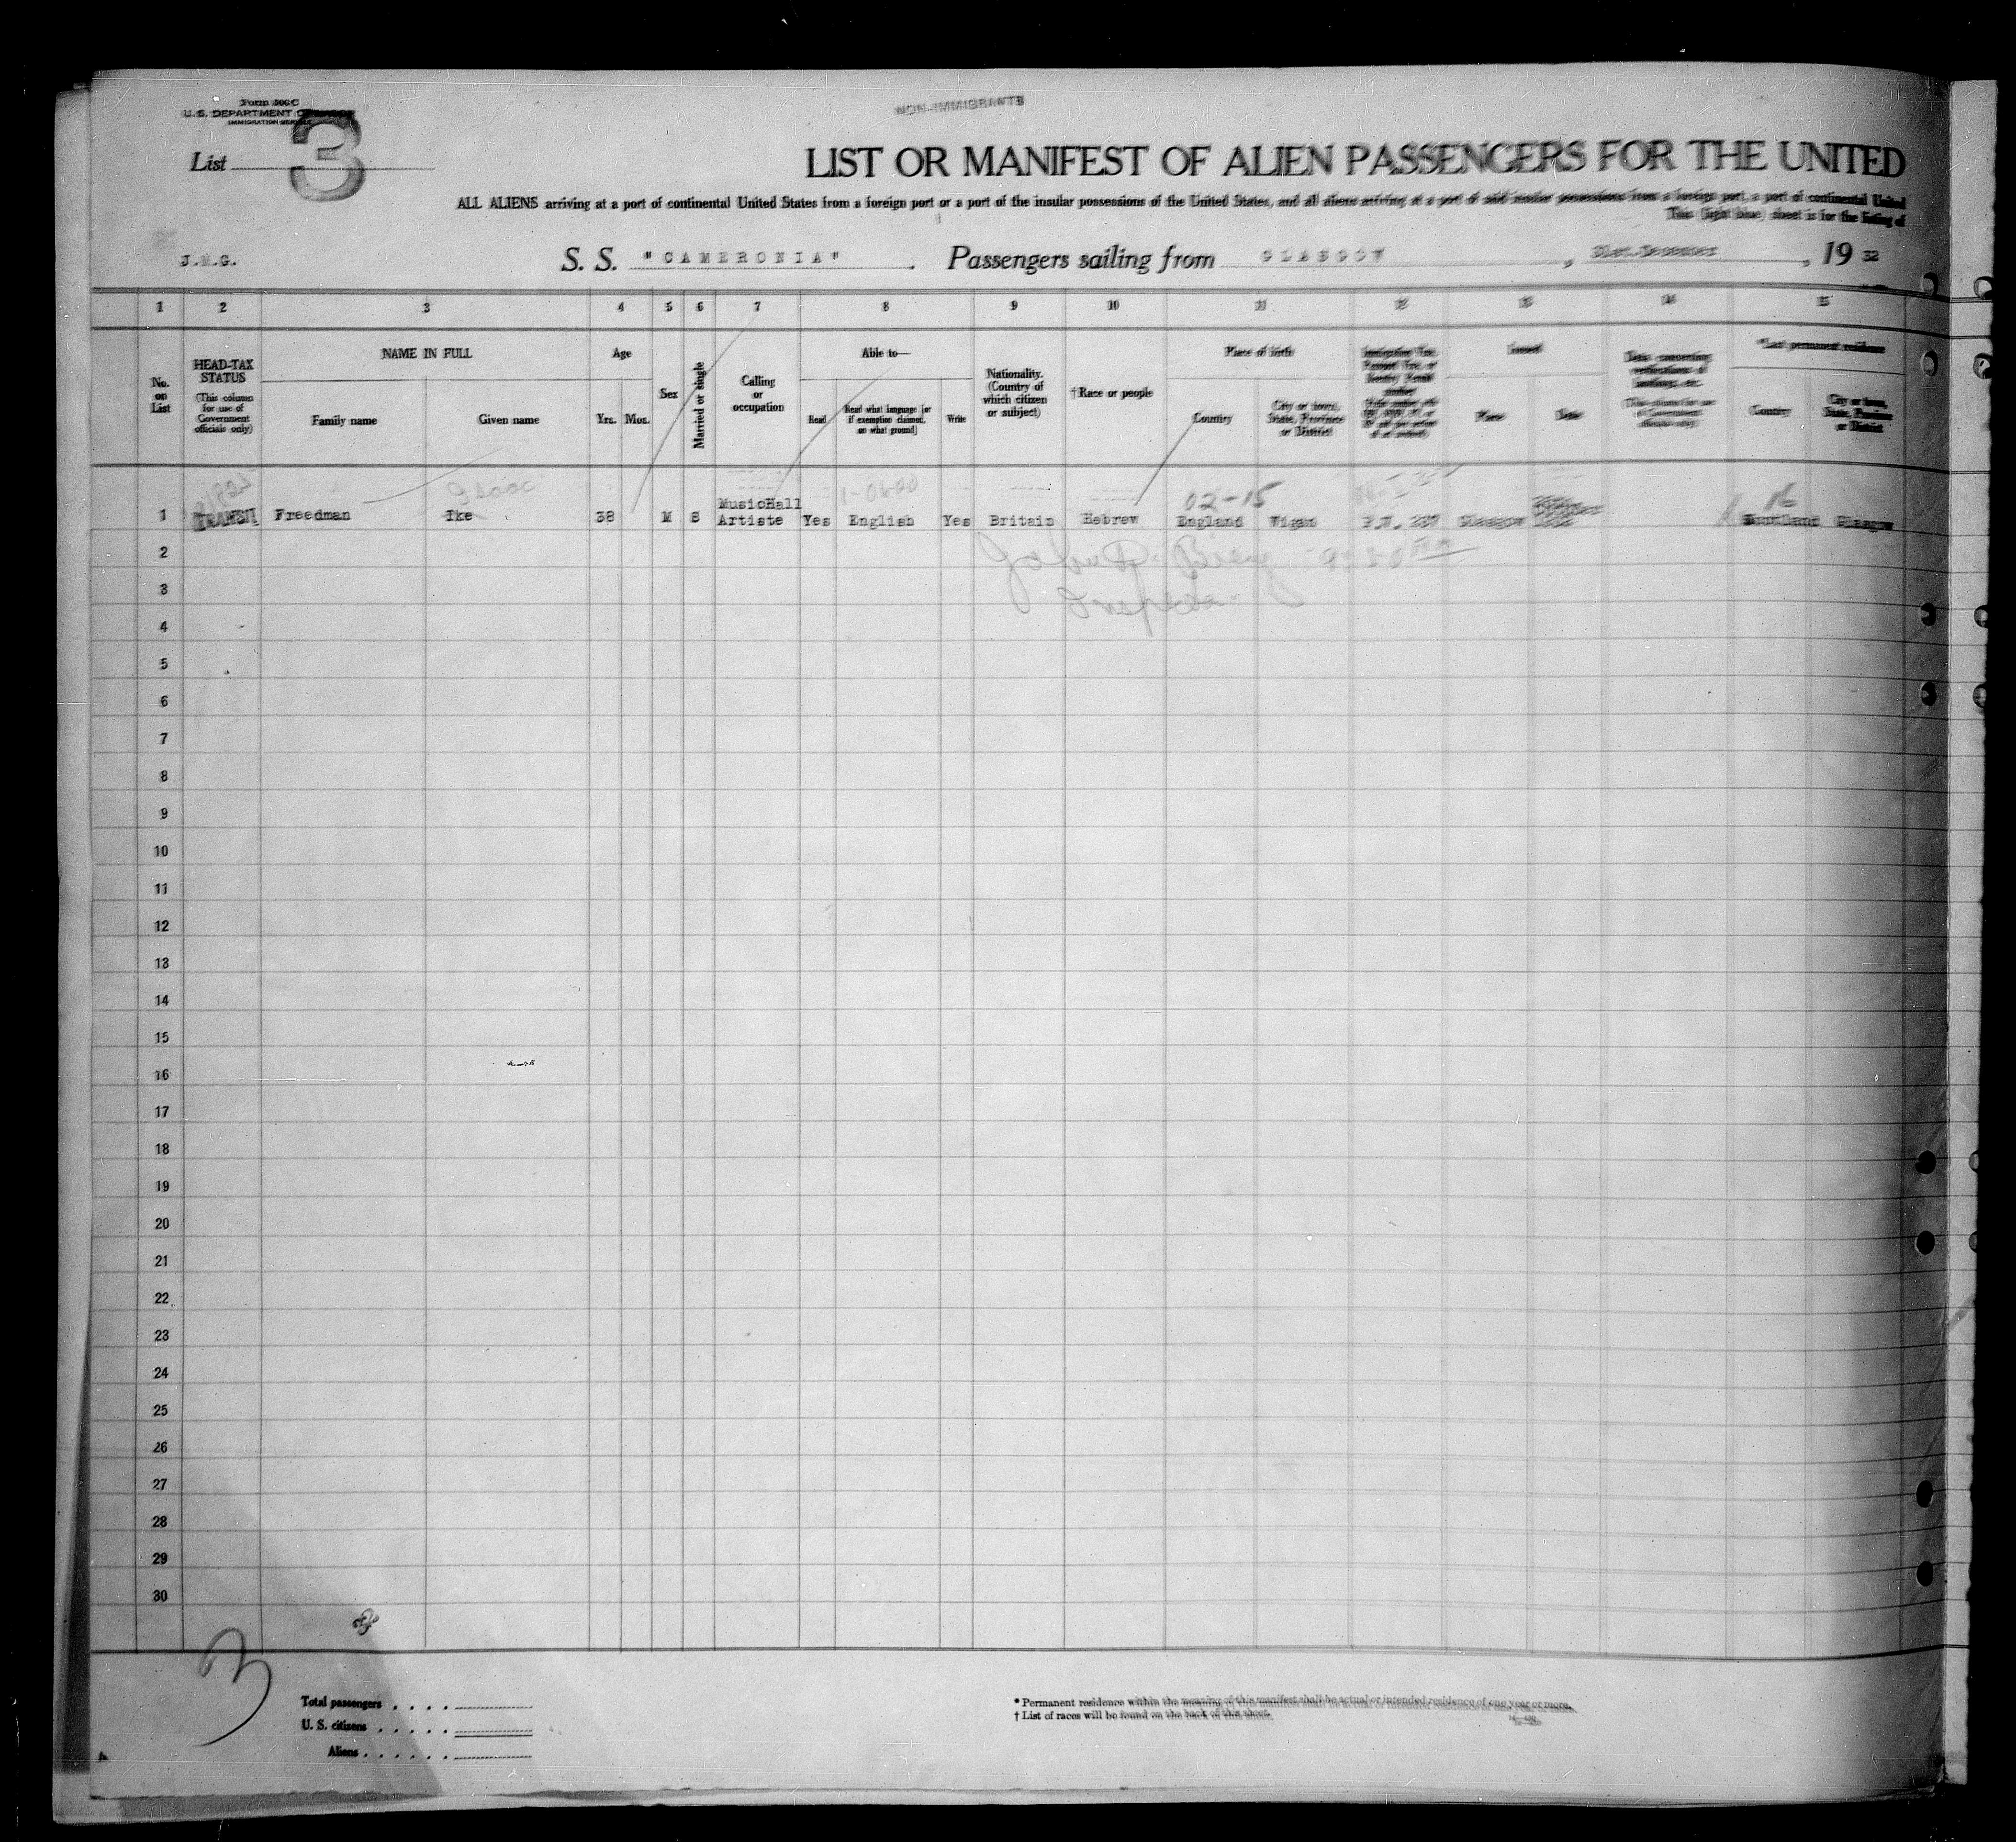 Form 500 C
U. S. DEPARTMENT OF
IMMIGRATION SERVICE
NON-IMMIGRANTS
List 3
LIST OR MANIFEST OF ALIEN PASSENGERS FOR THE UNITED
ALL ALIENS arriving at a port of continental United States from a foreign port or a port of the insular possessions of the United States, and all aliens arriving at a port of said insular possessions from a foreign port, a port of continental United
This (light blue) sheet is for the listing of
J.M.G.
S. S. "CAMERONIA" Passengers sailing from GLASGOW, 31st December, 19 32
1 2 3 4 5 6 7 8 9 10 11 12 13 14 15
No. on List
HEAD-TAX STATUS
(This column for use of Government officials only)
NAME IN FULL
Family name
Given name
Age
Yrs. Mos.
Sex
Married or single
Calling or occupation
Able to—
Read
Read what language [or if exemption claimed, on what ground]
Write
Nationality. (Country of which citizen or subject)
†Race or people
Place of birth
Country
City or town, State, Province or District
Issued
Place
Date
Data concerning verifications of landings, etc.
(This column for use of Government officials only)
*Last permanent residence
Country
City or town, State, Province or District
Isaac
02-15
16
1 TRANSIT Freedman Ike 38 M S MusicHall Artiste Yes English Yes Britain Hebrew England Wigan P.V. 237 Glasgow Scotland Glasgow
2
Inspector
3
4
5
6
7
8
9
10
11
12
13
14
15
16
17
18
19
20
21
22
23
24
25
26
27
28
29
30
3
Total passengers
U. S. citizens
Aliens
* Permanent residence within the meaning of this manifest shall be actual or intended residence of one year or more.
† List of races will be found on the back of this sheet.